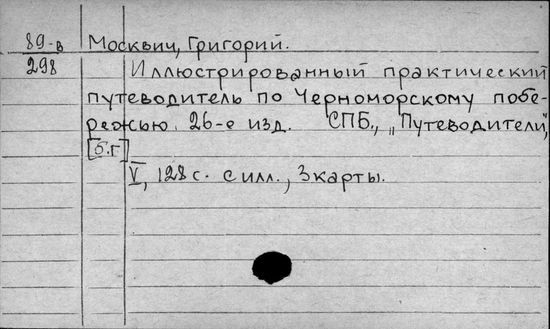 89-в Москвич, Григорий.
298 Иллюстрированный практический
путеводитель по Черноморскому побе-
режью. 26-е изд. СПБ., „Путеводители",
[б.г.]
V, 128 с. с илл., 3 карты.